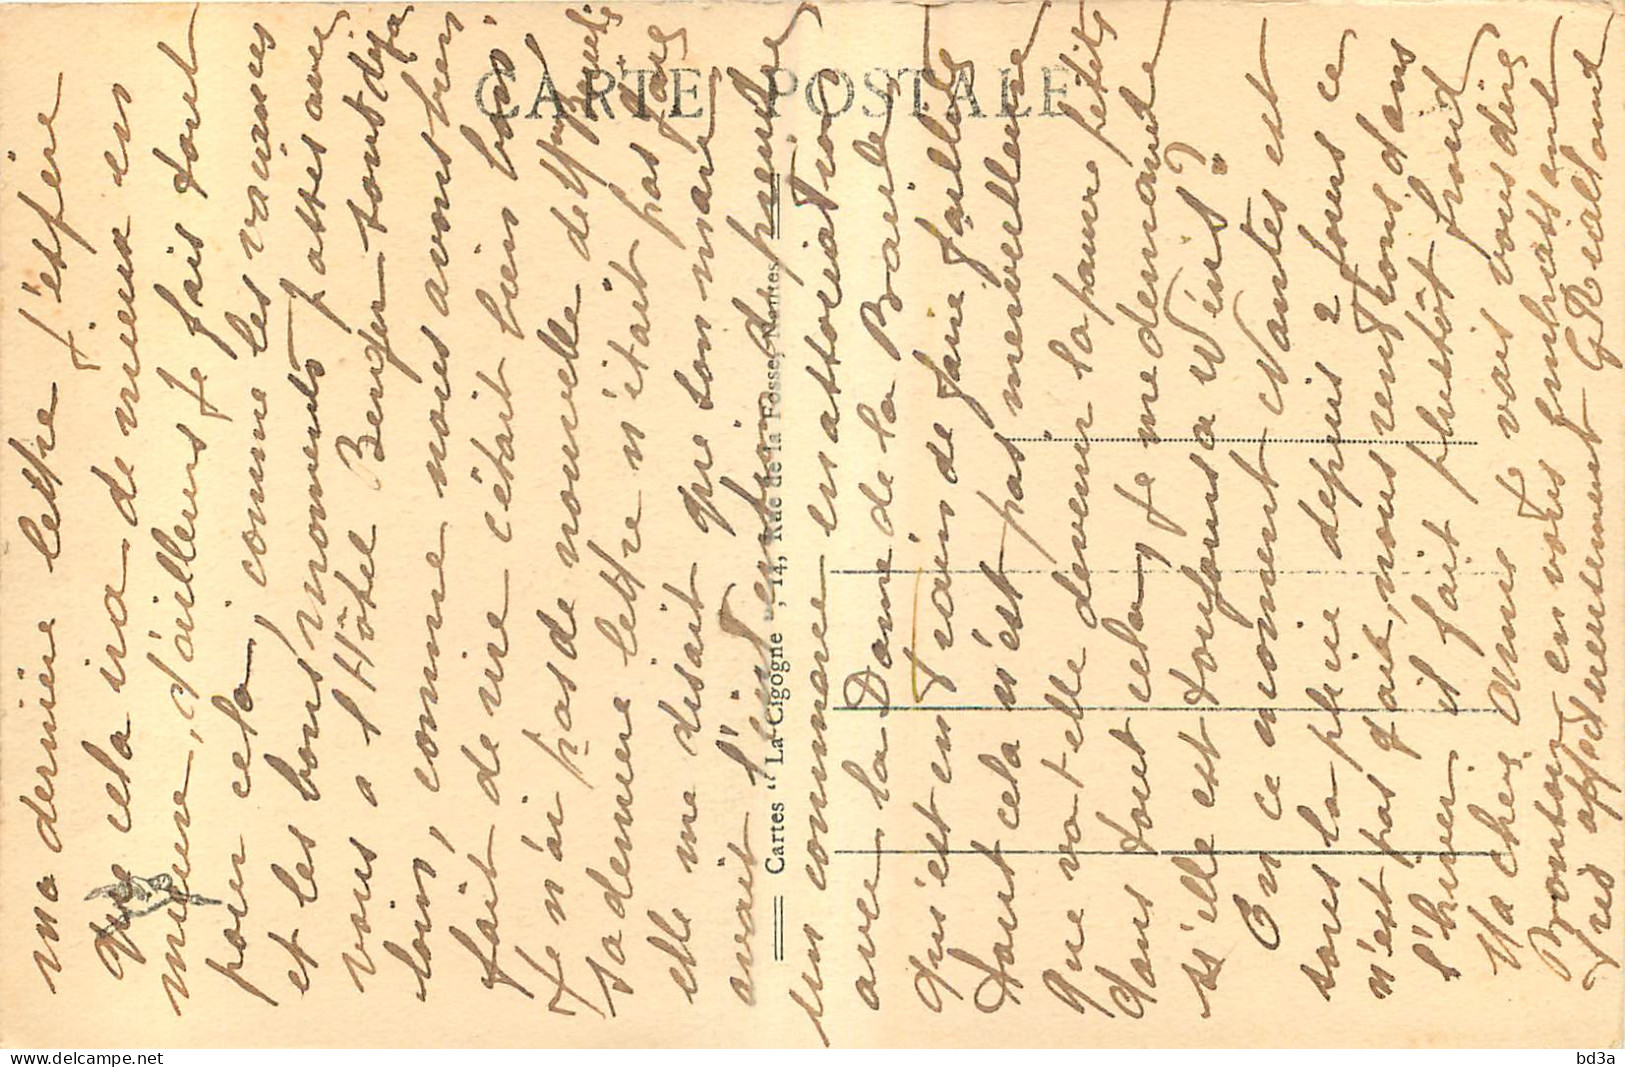 CARTE POSTALE
Cartes "La Cigogne", 14, Rue de la Fosse, Nantes
ma dernière lettre j'espère
que cela ira de mieux en
mieux, d'ailleurs je fais tout
pour cela, comme les vacances
et les bons moments passés avec
vous a l'Hôtel sont déja
loins, comme nous avons bien
fait de rire c'était bien bon.
Je n'ai pas de nouvelle de depuis
sa dernière lettre n'était pas
elle me disait que son mari
avait l'intention de prendre
un commerce en association
avec la Dame de la Baule
qui est en train de faire faillite
tout cela n'est pas merveilleux
que va t elle devenir la pauvre petite
dans tout cela, je me demande
si elle est toujours a
En ce moment Nantes est
sous la pluie depuis 2 jours ce
n'est pas gai, nous rentrons dans
l'hiver il fait plutôt froid
Ma chère Amie vais vous dire
Bonsoir en vous embrassant
très affectueusement G Rialland